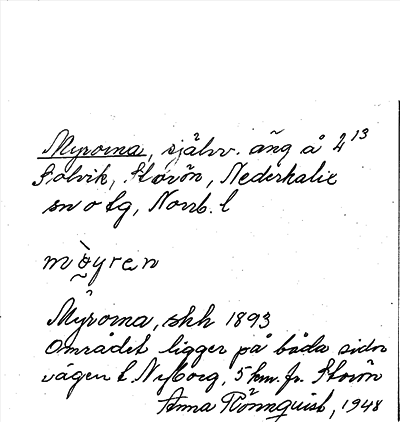 Myrorna, självv. äng å 2¹³
Solvik, Storön, Nederkalix
sn o tg, Norrb. l
Myrorna, skh 1893
Området ligger på båda sidor
vägen t. Nyborg, 5 km. fr. Storön
Anna Rönnquist, 1948